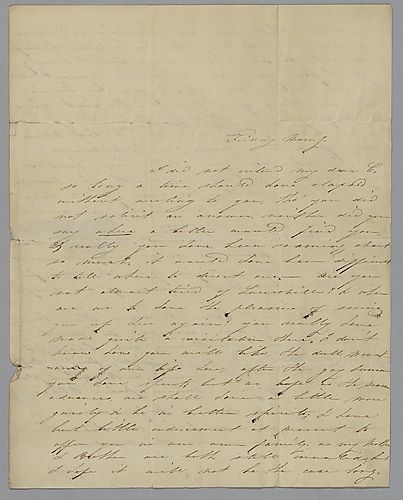 Friday Morng.
I did not intend my dear C,
so long a time should have elapsed
without writing to you, tho' you did
not solicit an answer, neither did you
say where a letter would find you
& really you have been roaming about
so much, it would have been difficult
to tell where to direct one, Are you
not almost tired of Louisville? & when
are we to have the pleasure of seeing
you up here again? you really have
made quite a visitation there, I don't
know how you will like the dull
of our life here, after the gay
you have spent, but we hope as the
advances, we shall have a little more
gaiety & be in better spirits, I have
but little inducement at present to
offer you in our own family, as my
& Brother are both still but
I hope it will not be the case long,